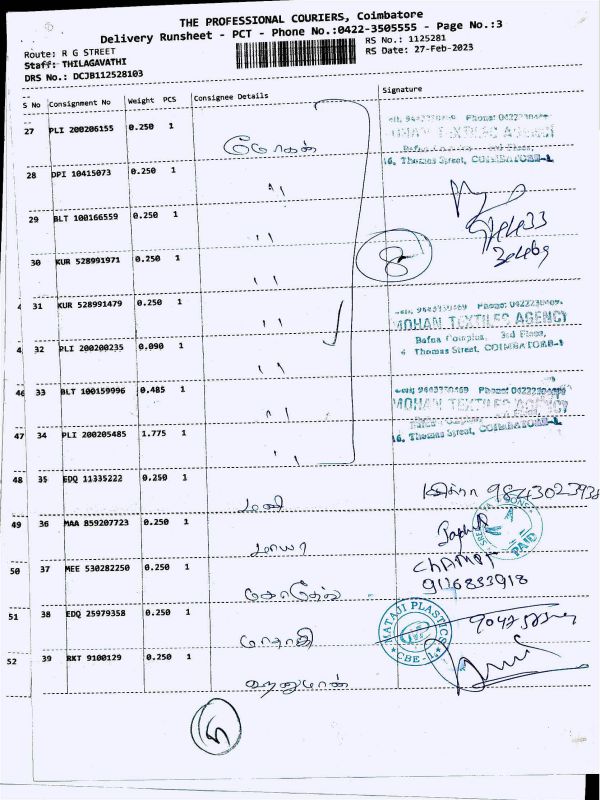 THE PROFESSIONAL COURIERS, Coimbatore
Delivery Runsheet - PCT - Phone No.:0422-3505555 - Page No.:3
Route: R G STREET
RS No.: 1125281
Staff: THILAGAVATHI
RS Date: 27-Feb-2023
DRS No.: DCJB112528103
S No Consignment No Weight PCS Consignee Details Signature
27 PLI 200206155 0.250 1 மோகன்
16, Thomas Street, COIMBATORE-1
28 DPI 10415073 0.250 1 "
29 BLT 100166559 0.250 1 "
30 KUR 528991971 0.250 1 " 8
4 31 KUR 528991479 0.250 1 "
MOHAN TEXTILES AGENCY
Bafna Complex, 3rd Floor,
Thomas Street, COIMBATORE-1
4 32 PLI 200200235 0.090 1 "
46 33 BLT 100159996 0.485 1 "
MOHAN TEXTILES AGENCY
16, Thomas Street, COIMBATORE-1
47 34 PLI 200205485 1.775 1 "
48 35 EDQ 11335222 0.250 1 மணி
49 36 MAA 859207723 0.250 1 மாயா
PAID
50 37 MEE 530282250 0.250 1
9116833918
51 38 EDQ 25979358 0.250 1 மாதாஜி
MATAJI PLASTICS
CBE-1
52 39 RKT 9100129 0.250 1 ஹனுமான்
5